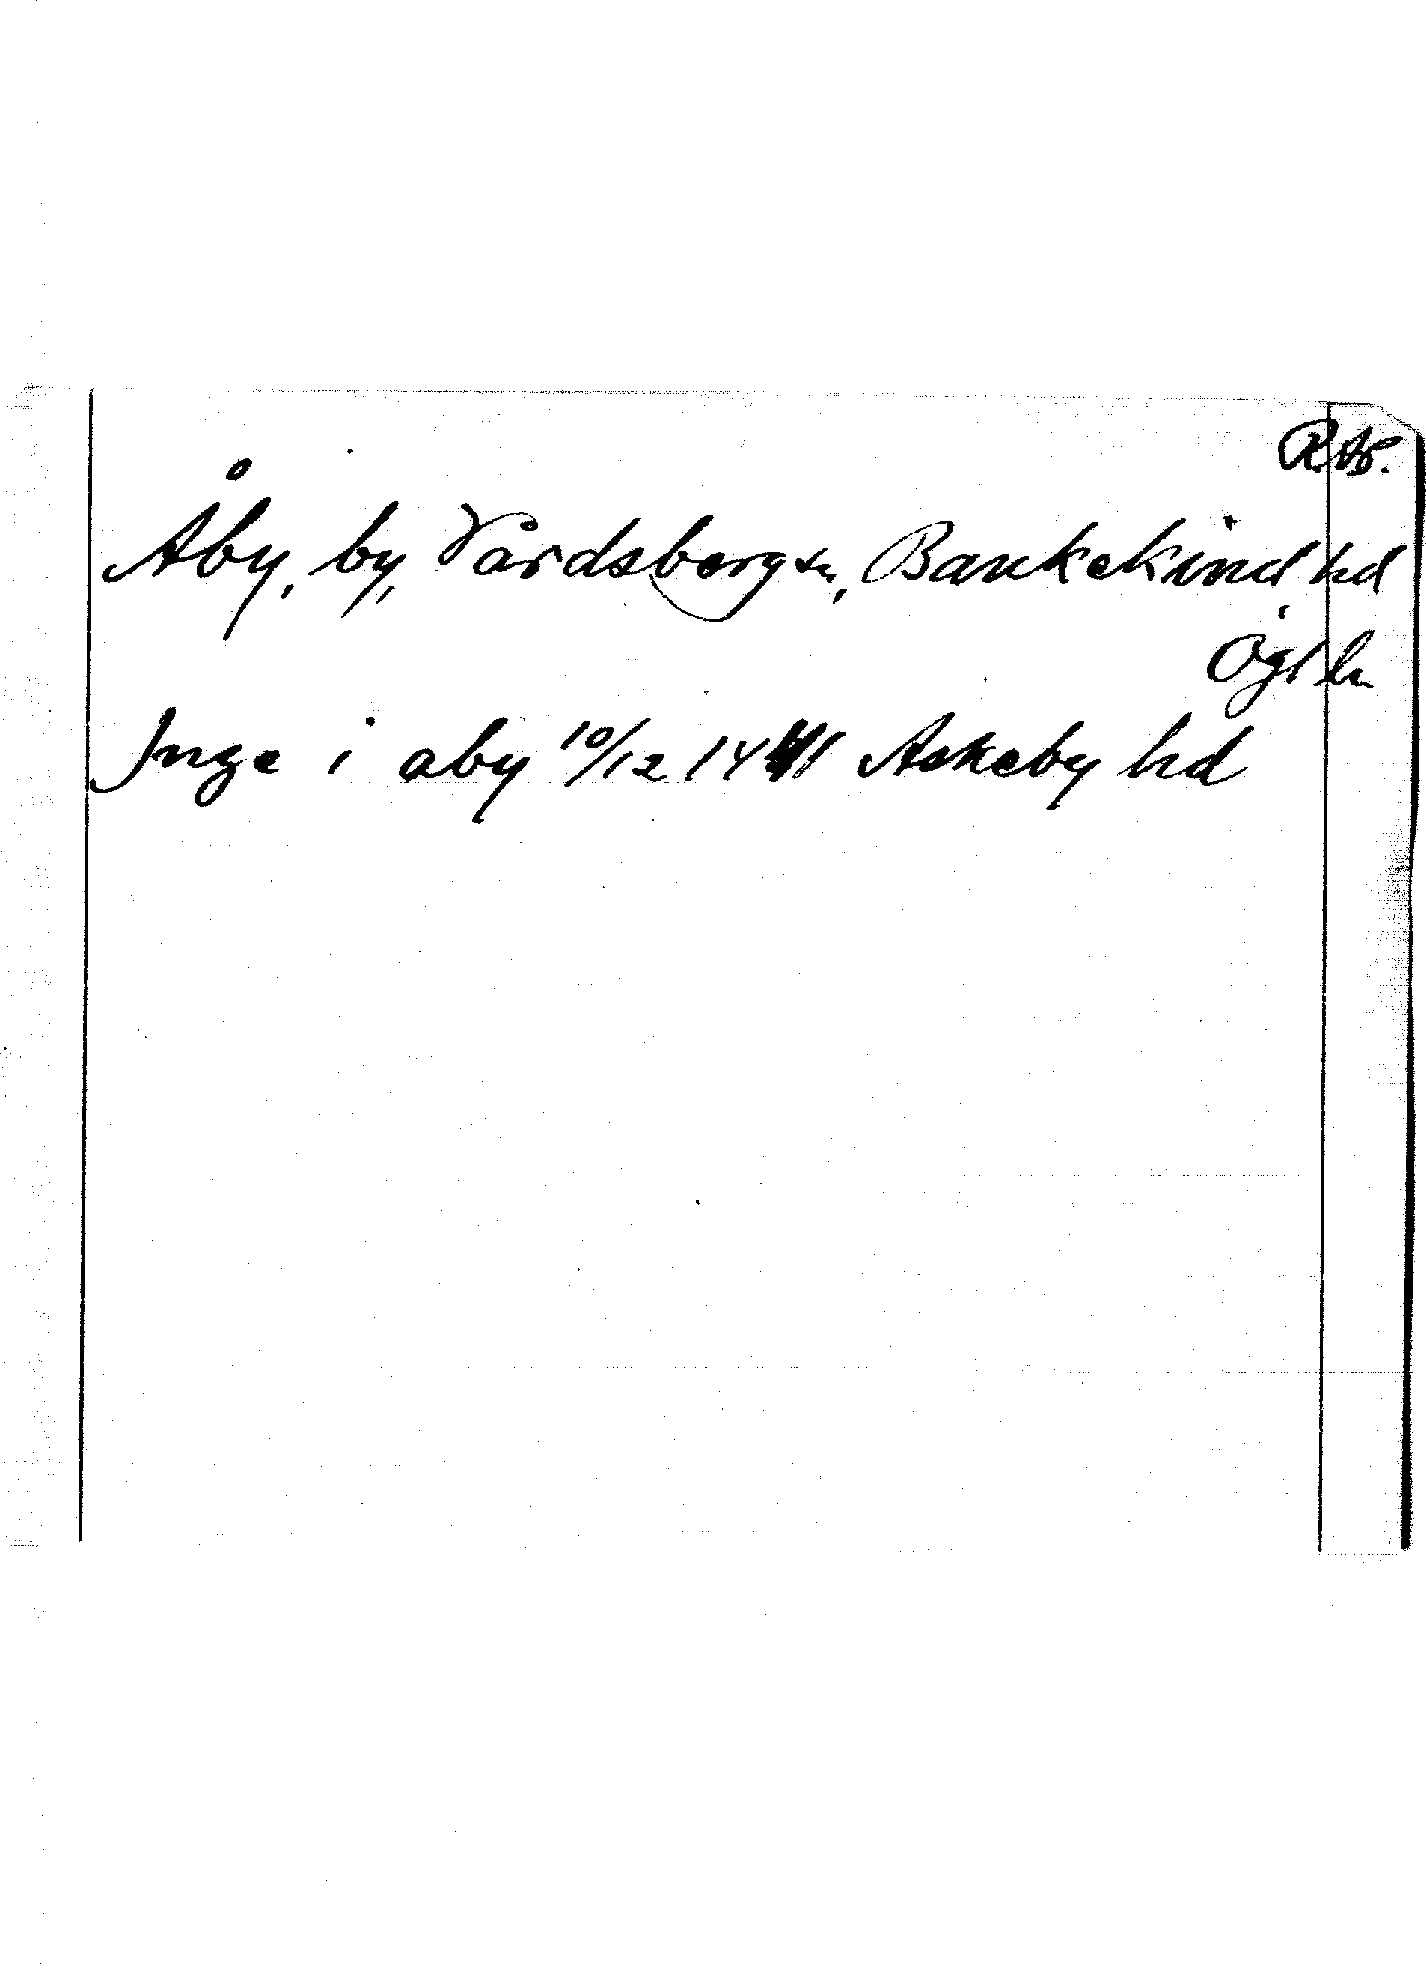 R.Ap.
Åby, by, Vårdsberg sn, Bankekind hd
Ögl ln
Inge i aby 10/12 1441 Askeby hd